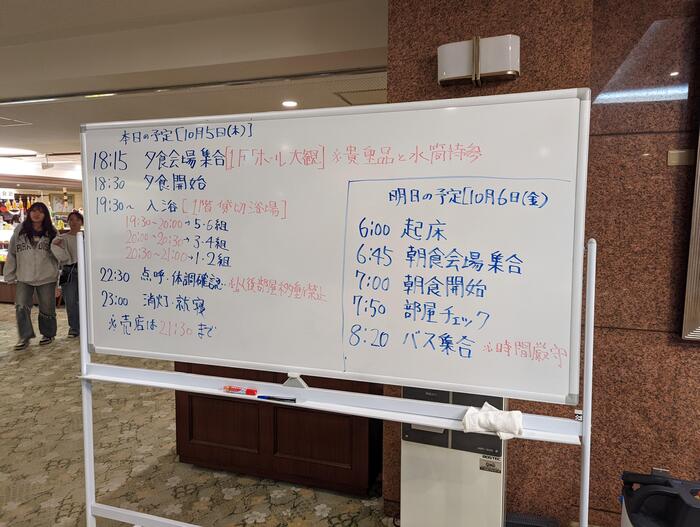 本日の予定[10月5日(木)]
18:15 夕食会場集合[1F「ホール大観」] ※貴重品と水筒持参
18:30 夕食開始
19:30〜 入浴[1階 貸切浴場]
19:30〜20:00→5・6組
20:00→20:30→3・4組
20:30〜21:00→1・2組
22:30 点呼・体調確認 ※以後部屋移動禁止
23:00 消灯・就寝
※売店は21:30まで
明日の予定[10月6日(金)]
6:00 起床
6:45 朝食会場集合
7:00 朝食開始
7:50 部屋チェック
8:20 バス集合 ※時間厳守